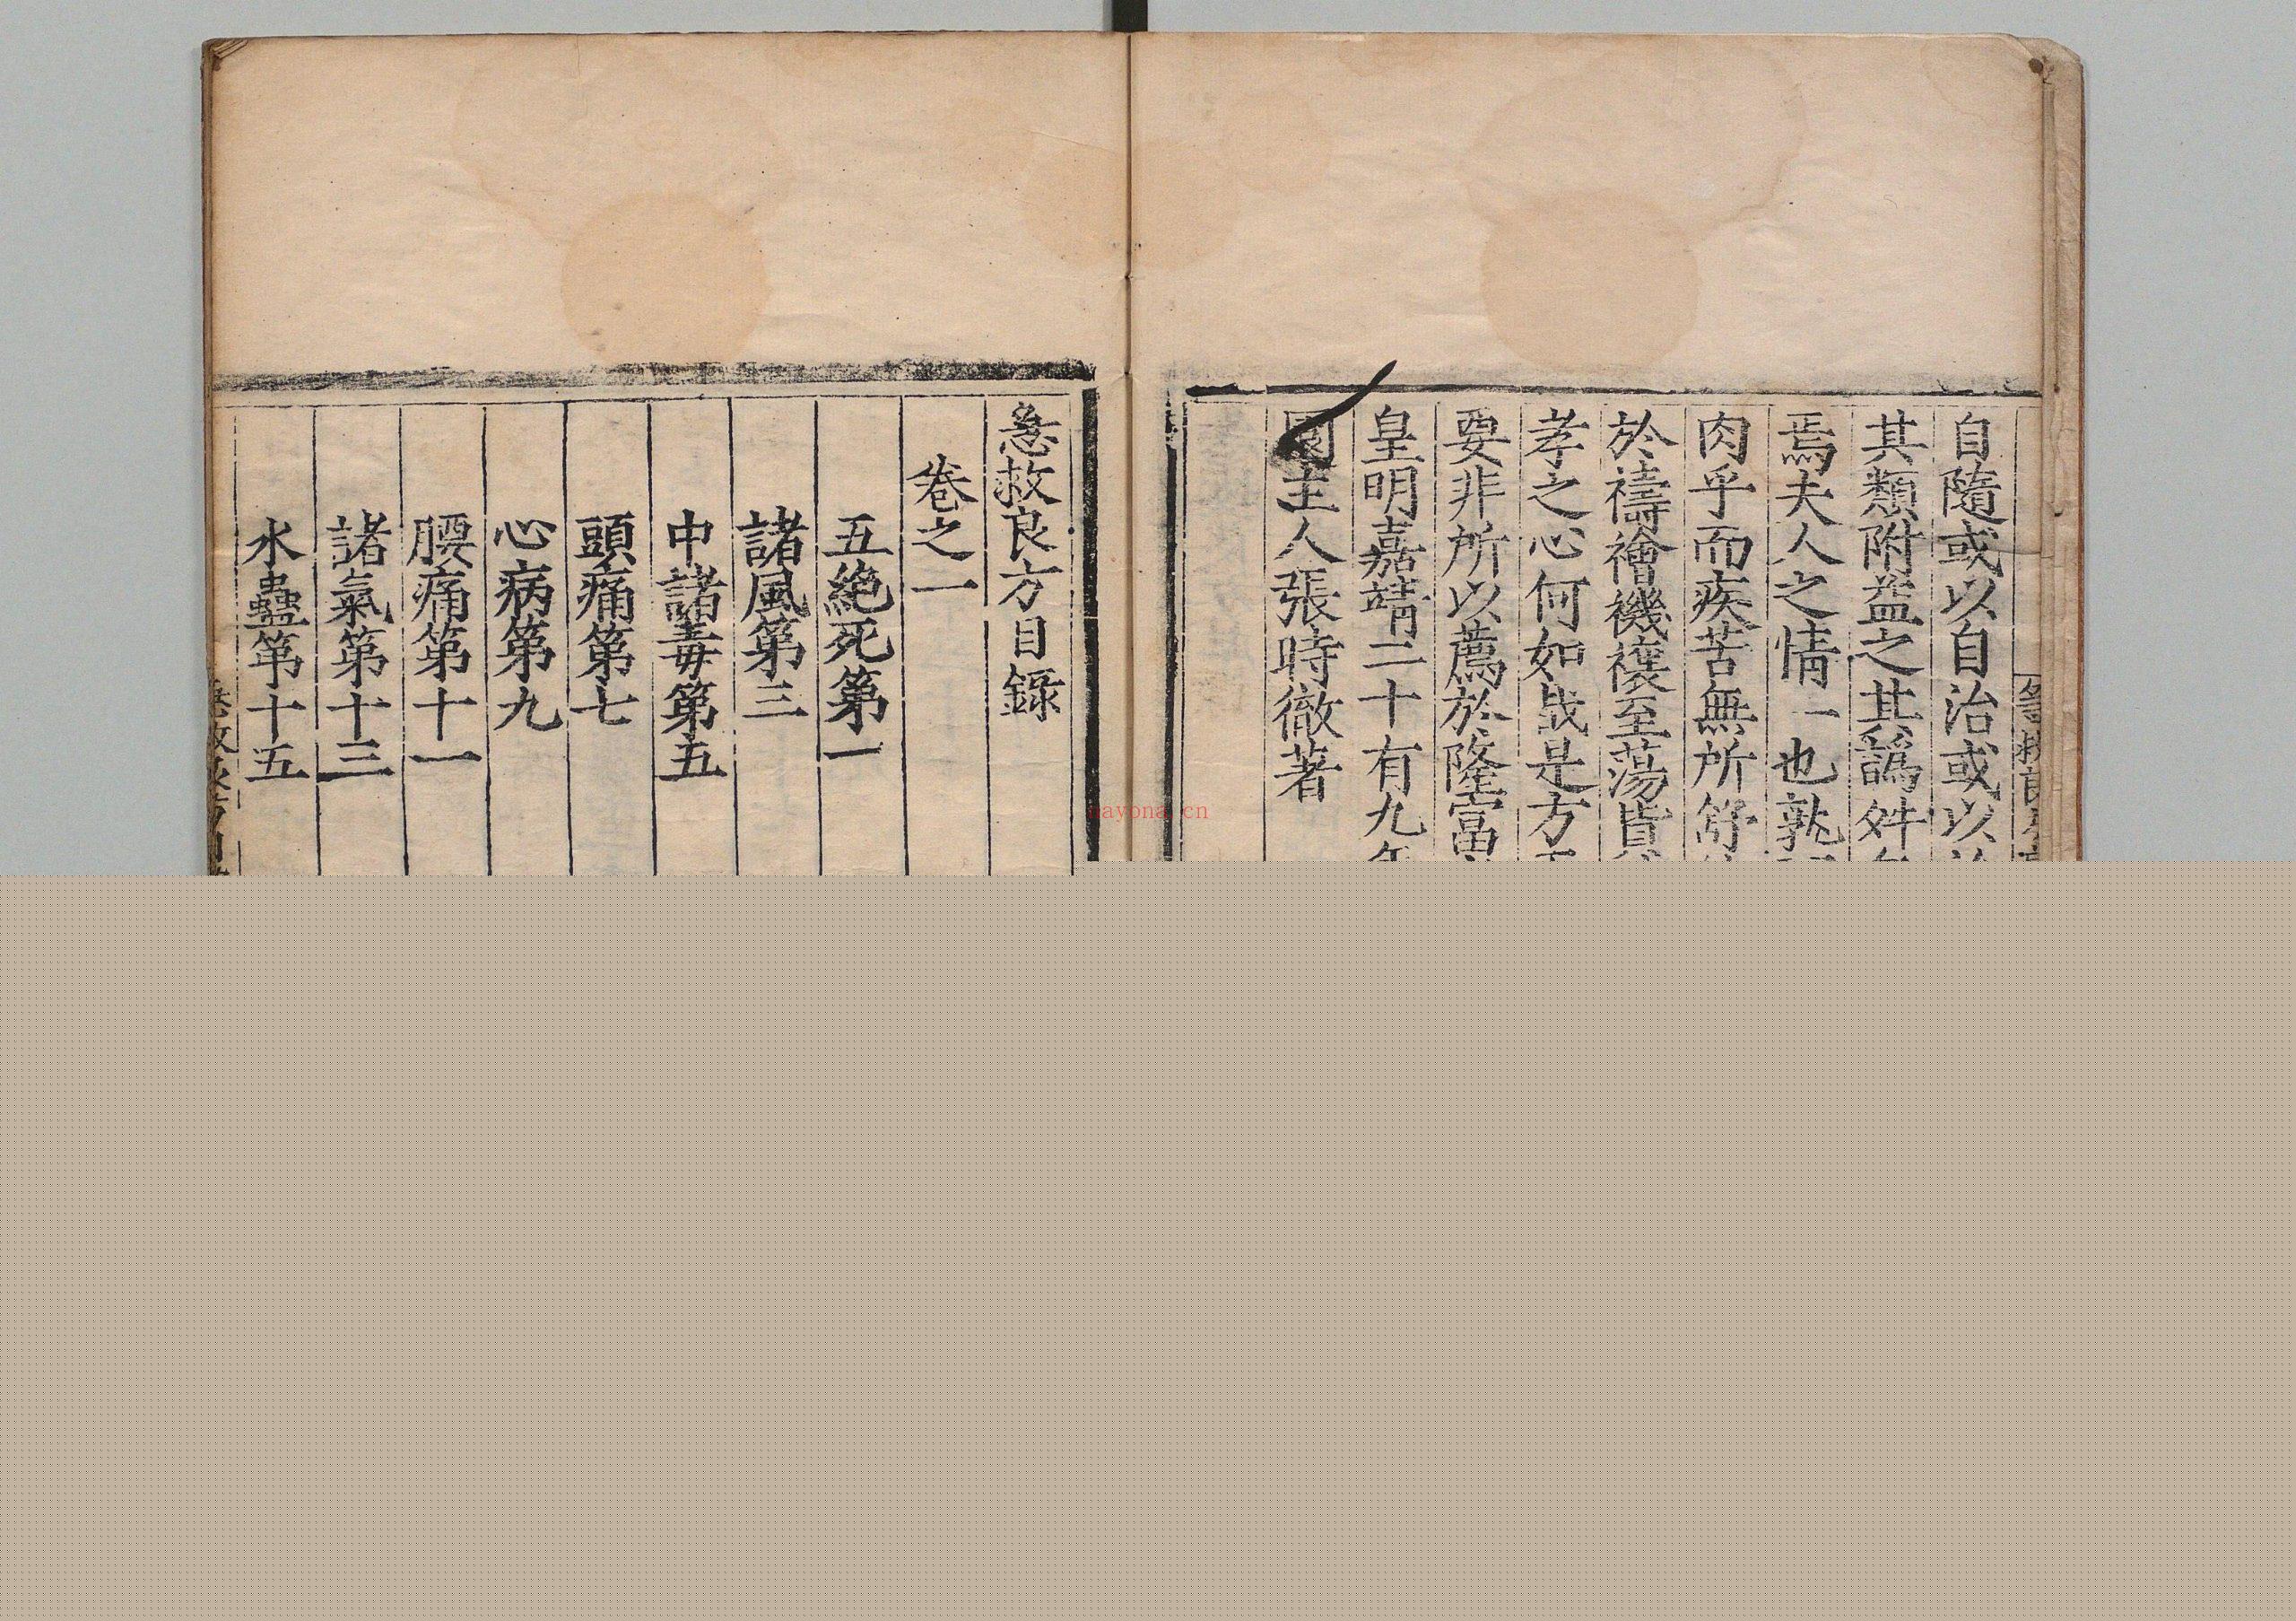 自隨或以自治或以
其類附益之其譌舛
焉夫人之情一也孰
肉乎而疾苦無所舒
於禱禬禨禳至蕩貲
孝之心何如哉是方
要非所以薦於隆富
皇明嘉靖二十有九年
園主人張時徹著
急救良方目錄
卷之一
五絶死第一
諸風第三
中諸毒第五
頭痛第七
心病第九
腰痛第十一
諸氣第十三
水蠱第十五